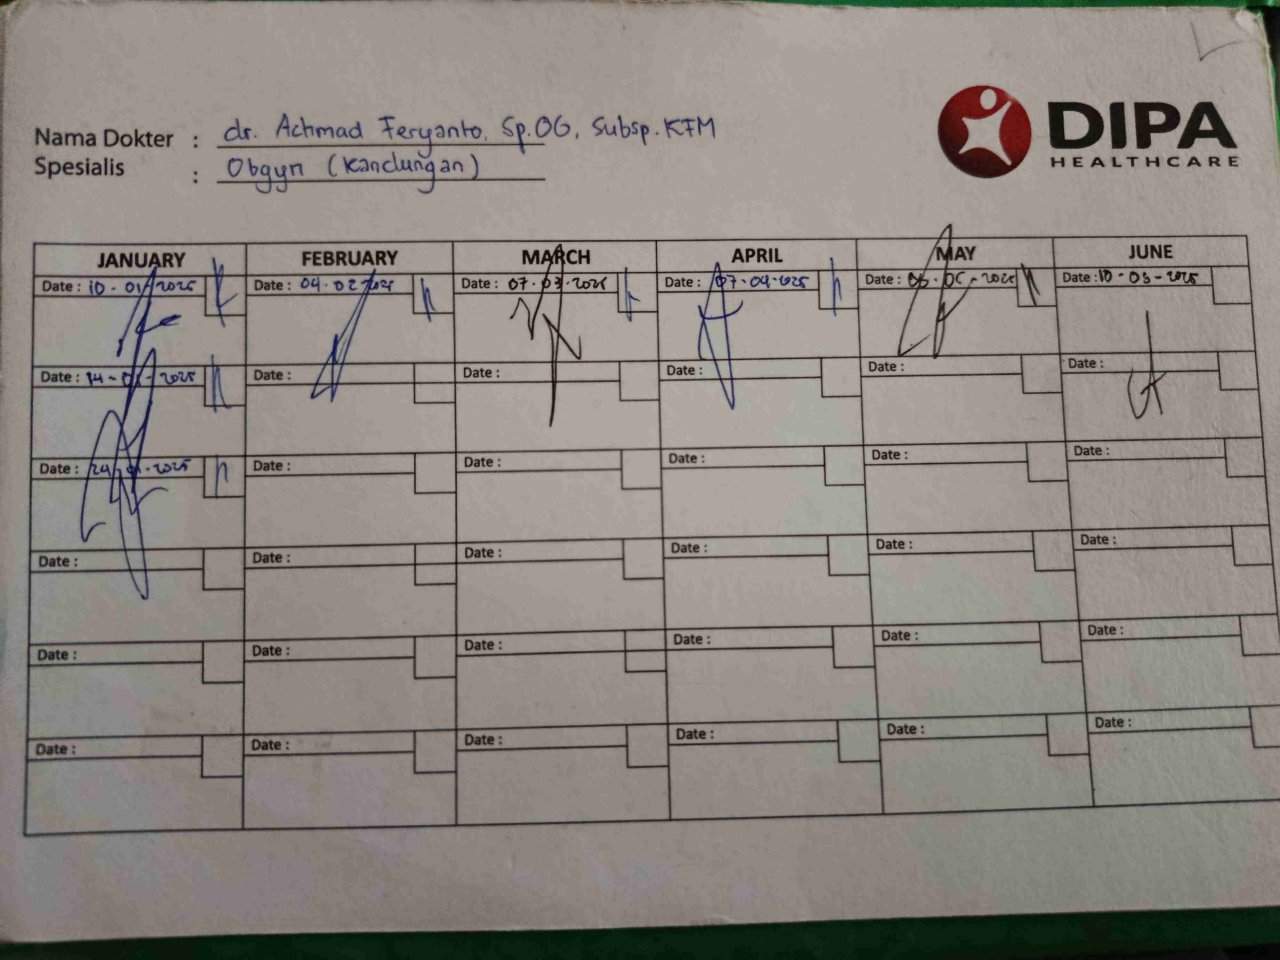 DIPA
HEALTHCARE
Nama Dokter : dr. Achmad Feryanto, Sp.OG, Subsp.KFM
Spesialis : Obgyn (Kandungan)
JANUARY FEBRUARY MARCH APRIL MAY JUNE
Date : 10-01-2025 Date : 04-02-2025 Date : 07-03-2025 Date : 07-04-2025 Date : 06-05-2025 Date : 10-03-2025
Date : 14-01-2025 Date : Date : Date : Date : Date :
Date : 24-01-2025 Date : Date : Date : Date : Date :
Date : Date : Date : Date : Date : Date :
Date : Date : Date : Date : Date : Date :
Date : Date : Date : Date : Date : Date :